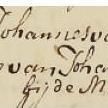 Johannes v
van Joha
bijde M